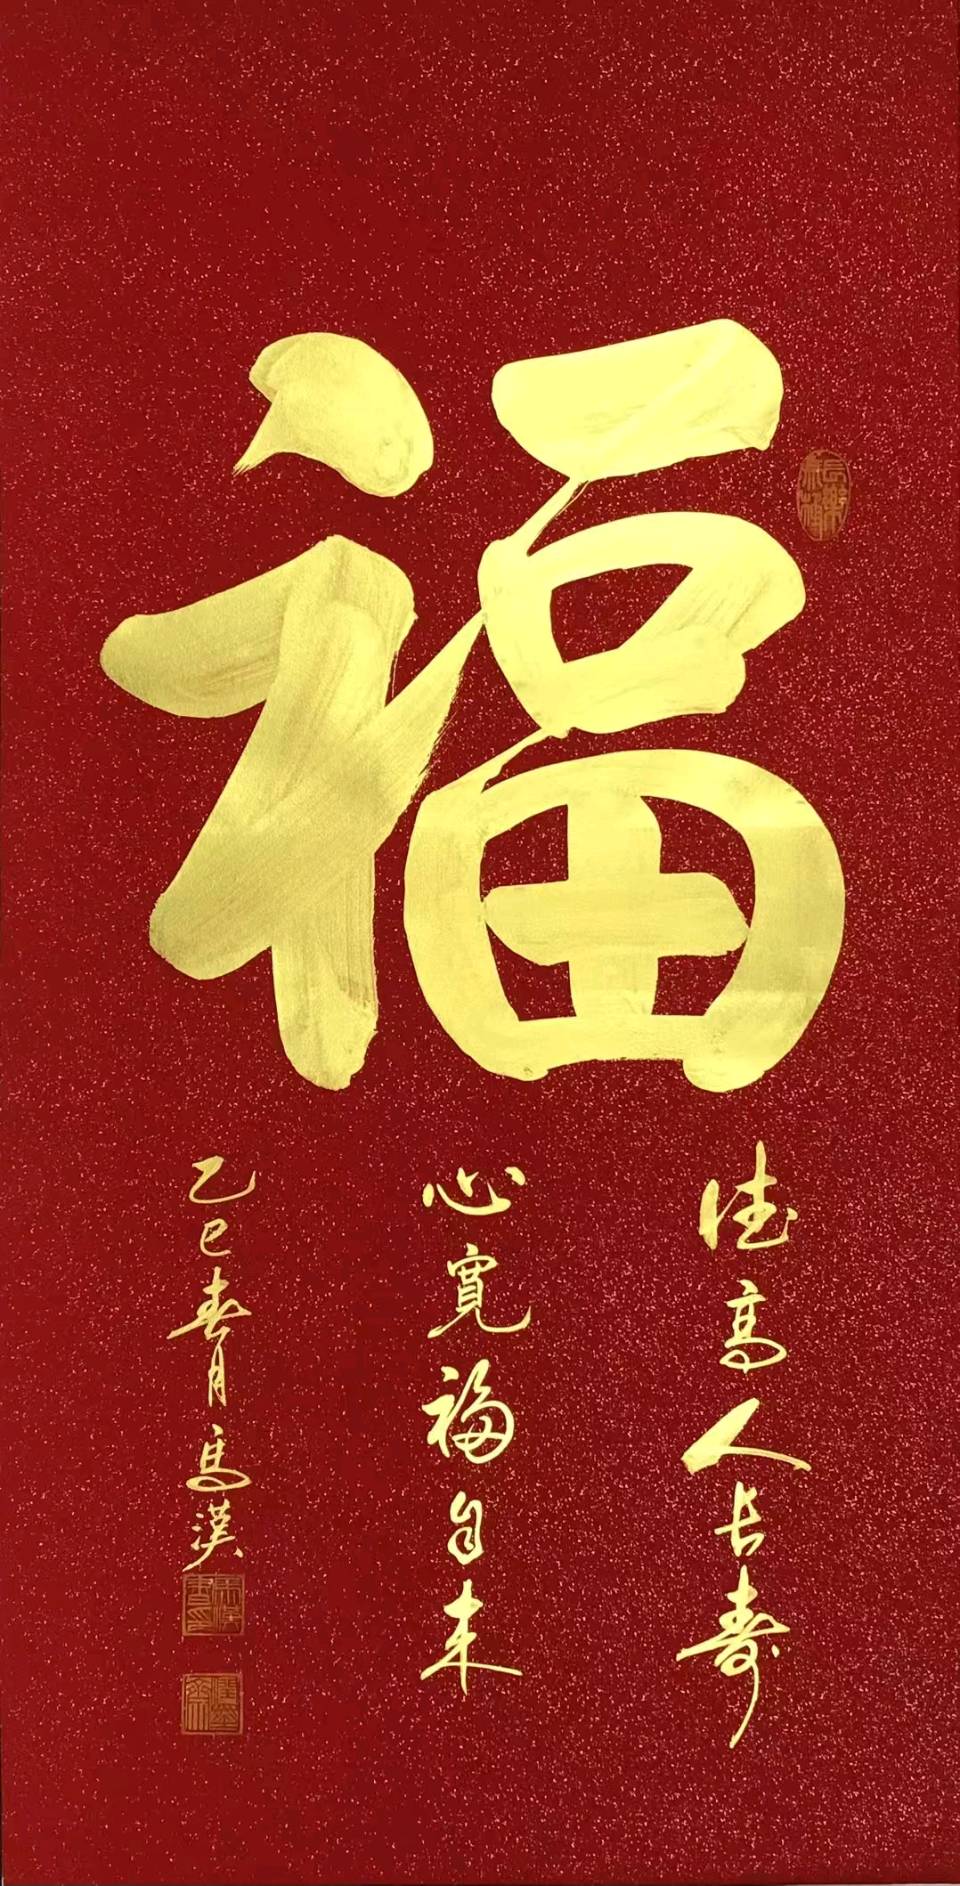 福
德高人长寿
心寬福自来
乙巳春月馬漢